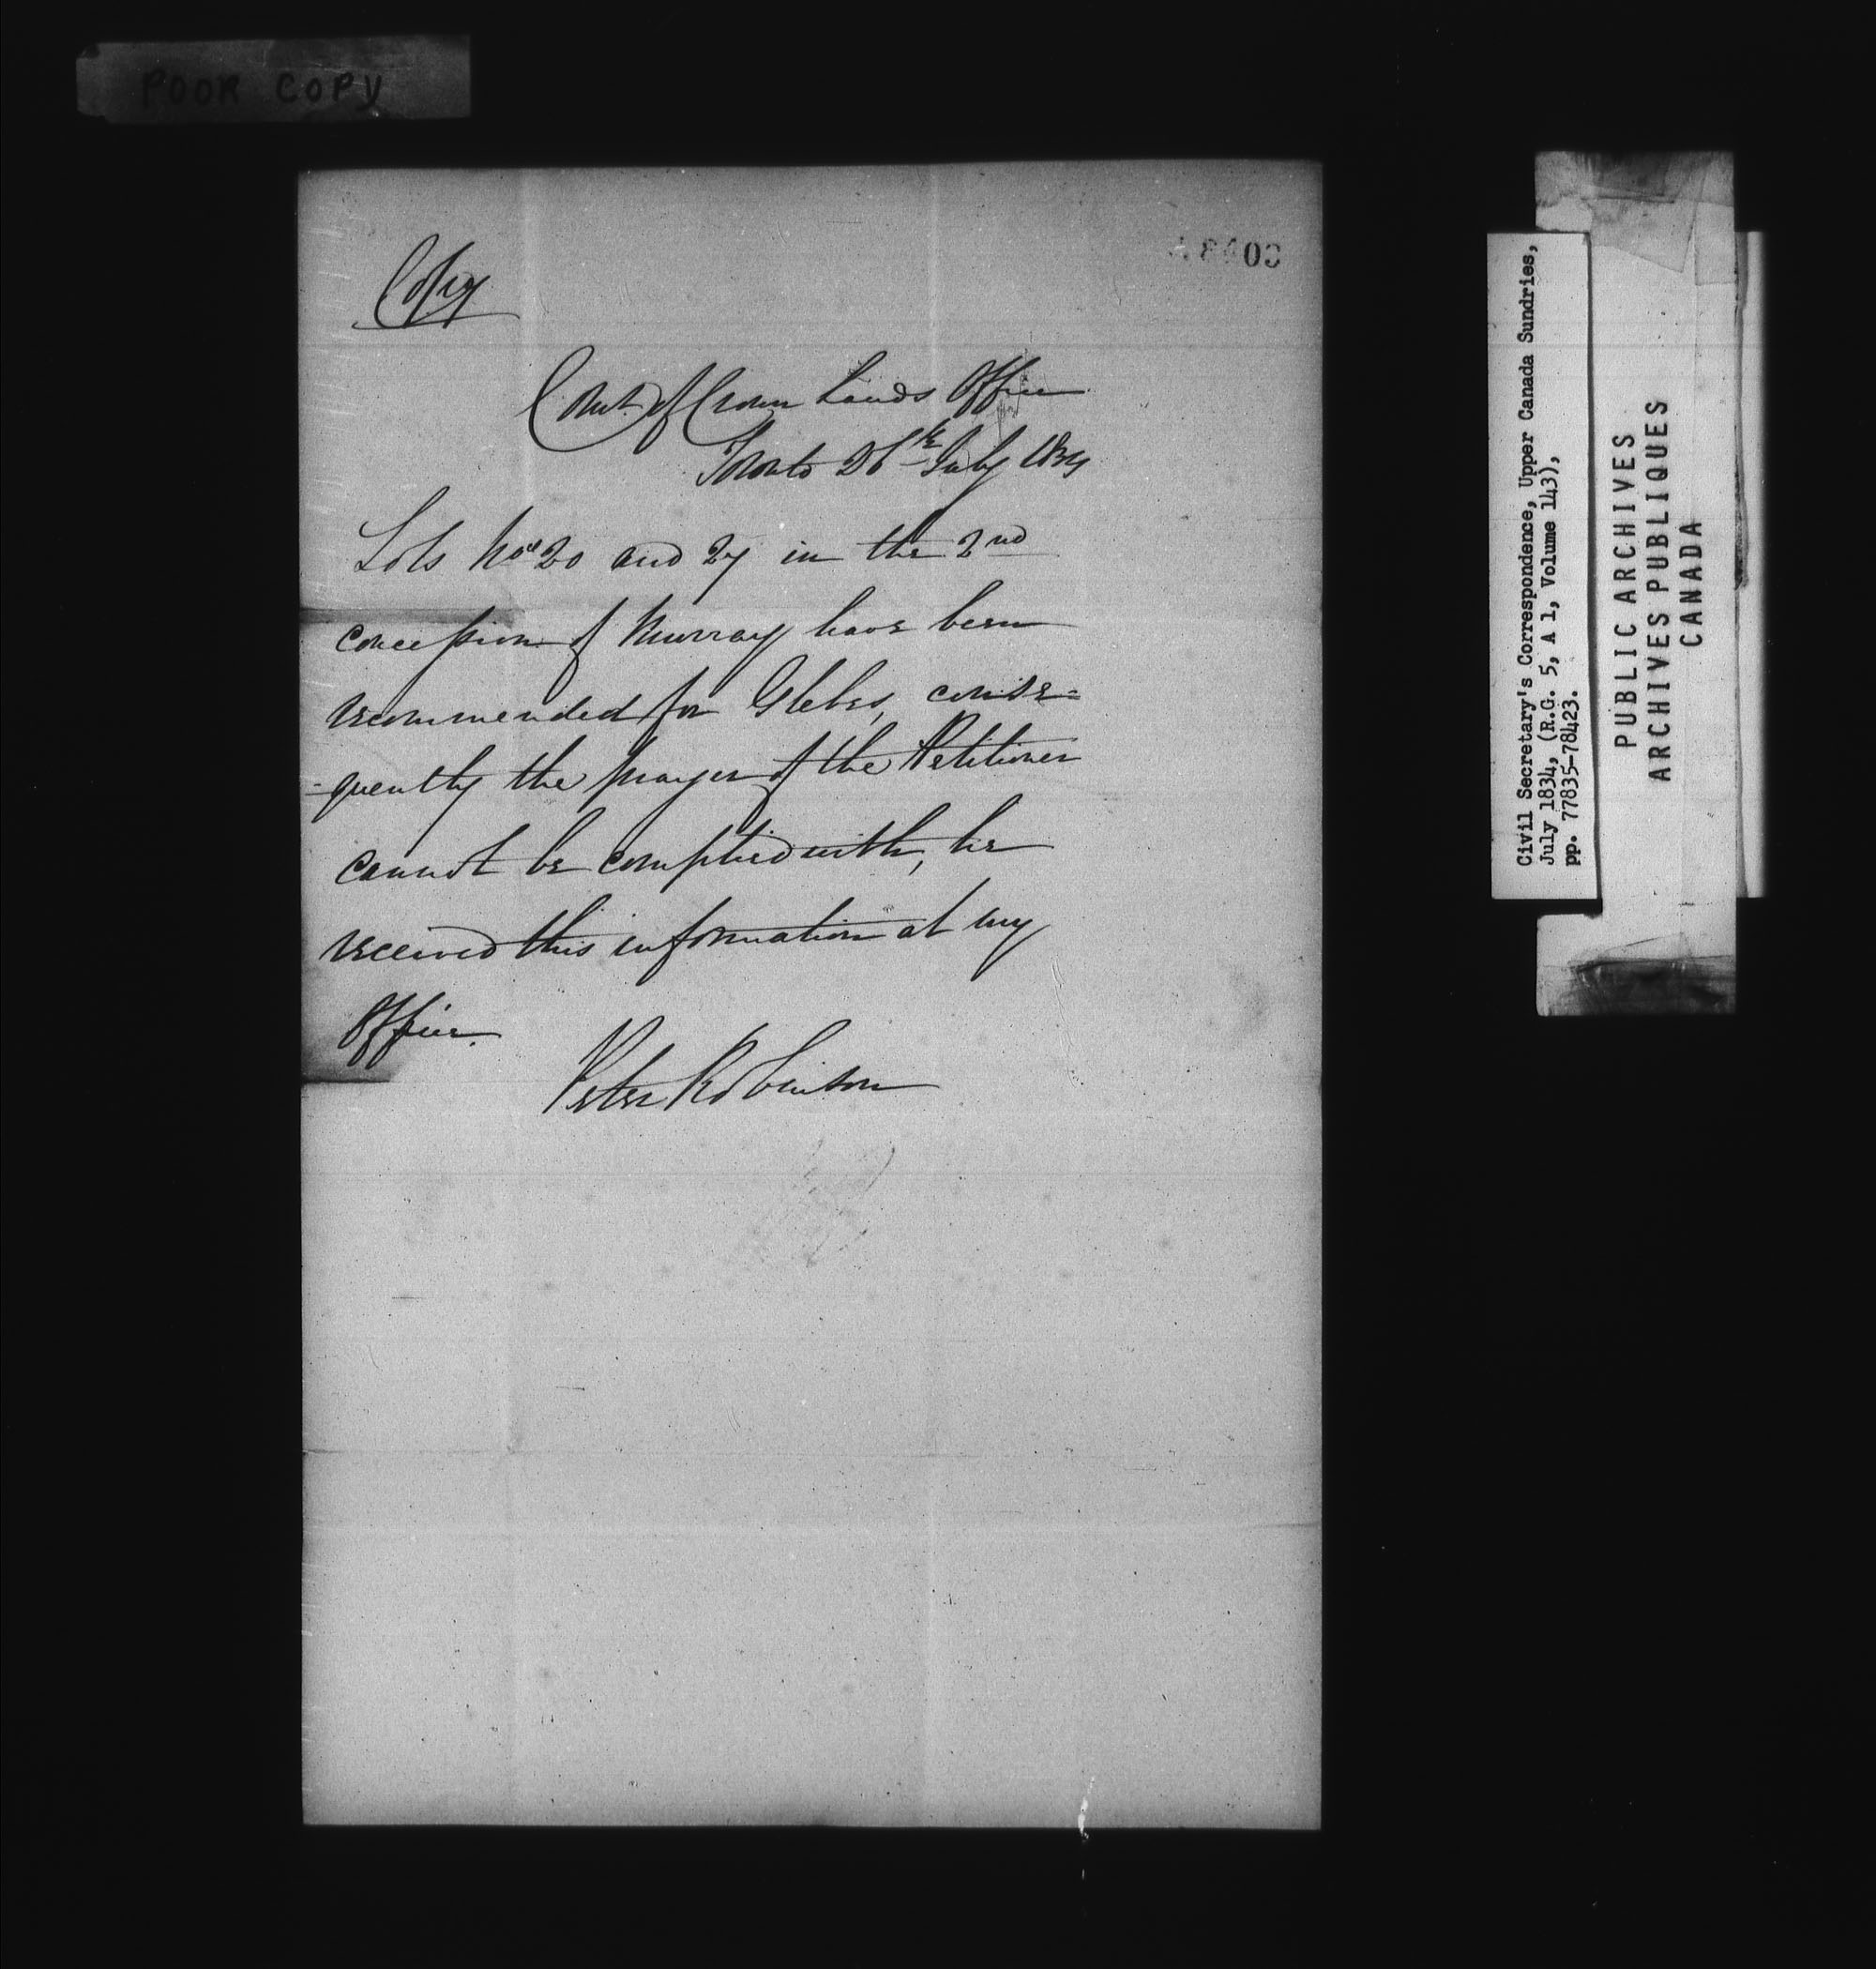 POOR COPY
Copy
Comr. of Crown Lands Office
Toronto 26th July 1834
Lots Nos 20 and 27 in the 2nd
concession of Murray have been
recommended for Glebes, conse=
-quently the prayer of the Petitioner
cannot be complied with, he
received this information at my
Office.
Peter Robinson
Civil Secretary's Correspondence, Upper Canada Sundries,
July 1834, (R.G. 5, A 1, Volume 143),
pp. 77835-78423.
PUBLIC ARCHIVES
ARCHIVES PUBLIQUES
CANADA